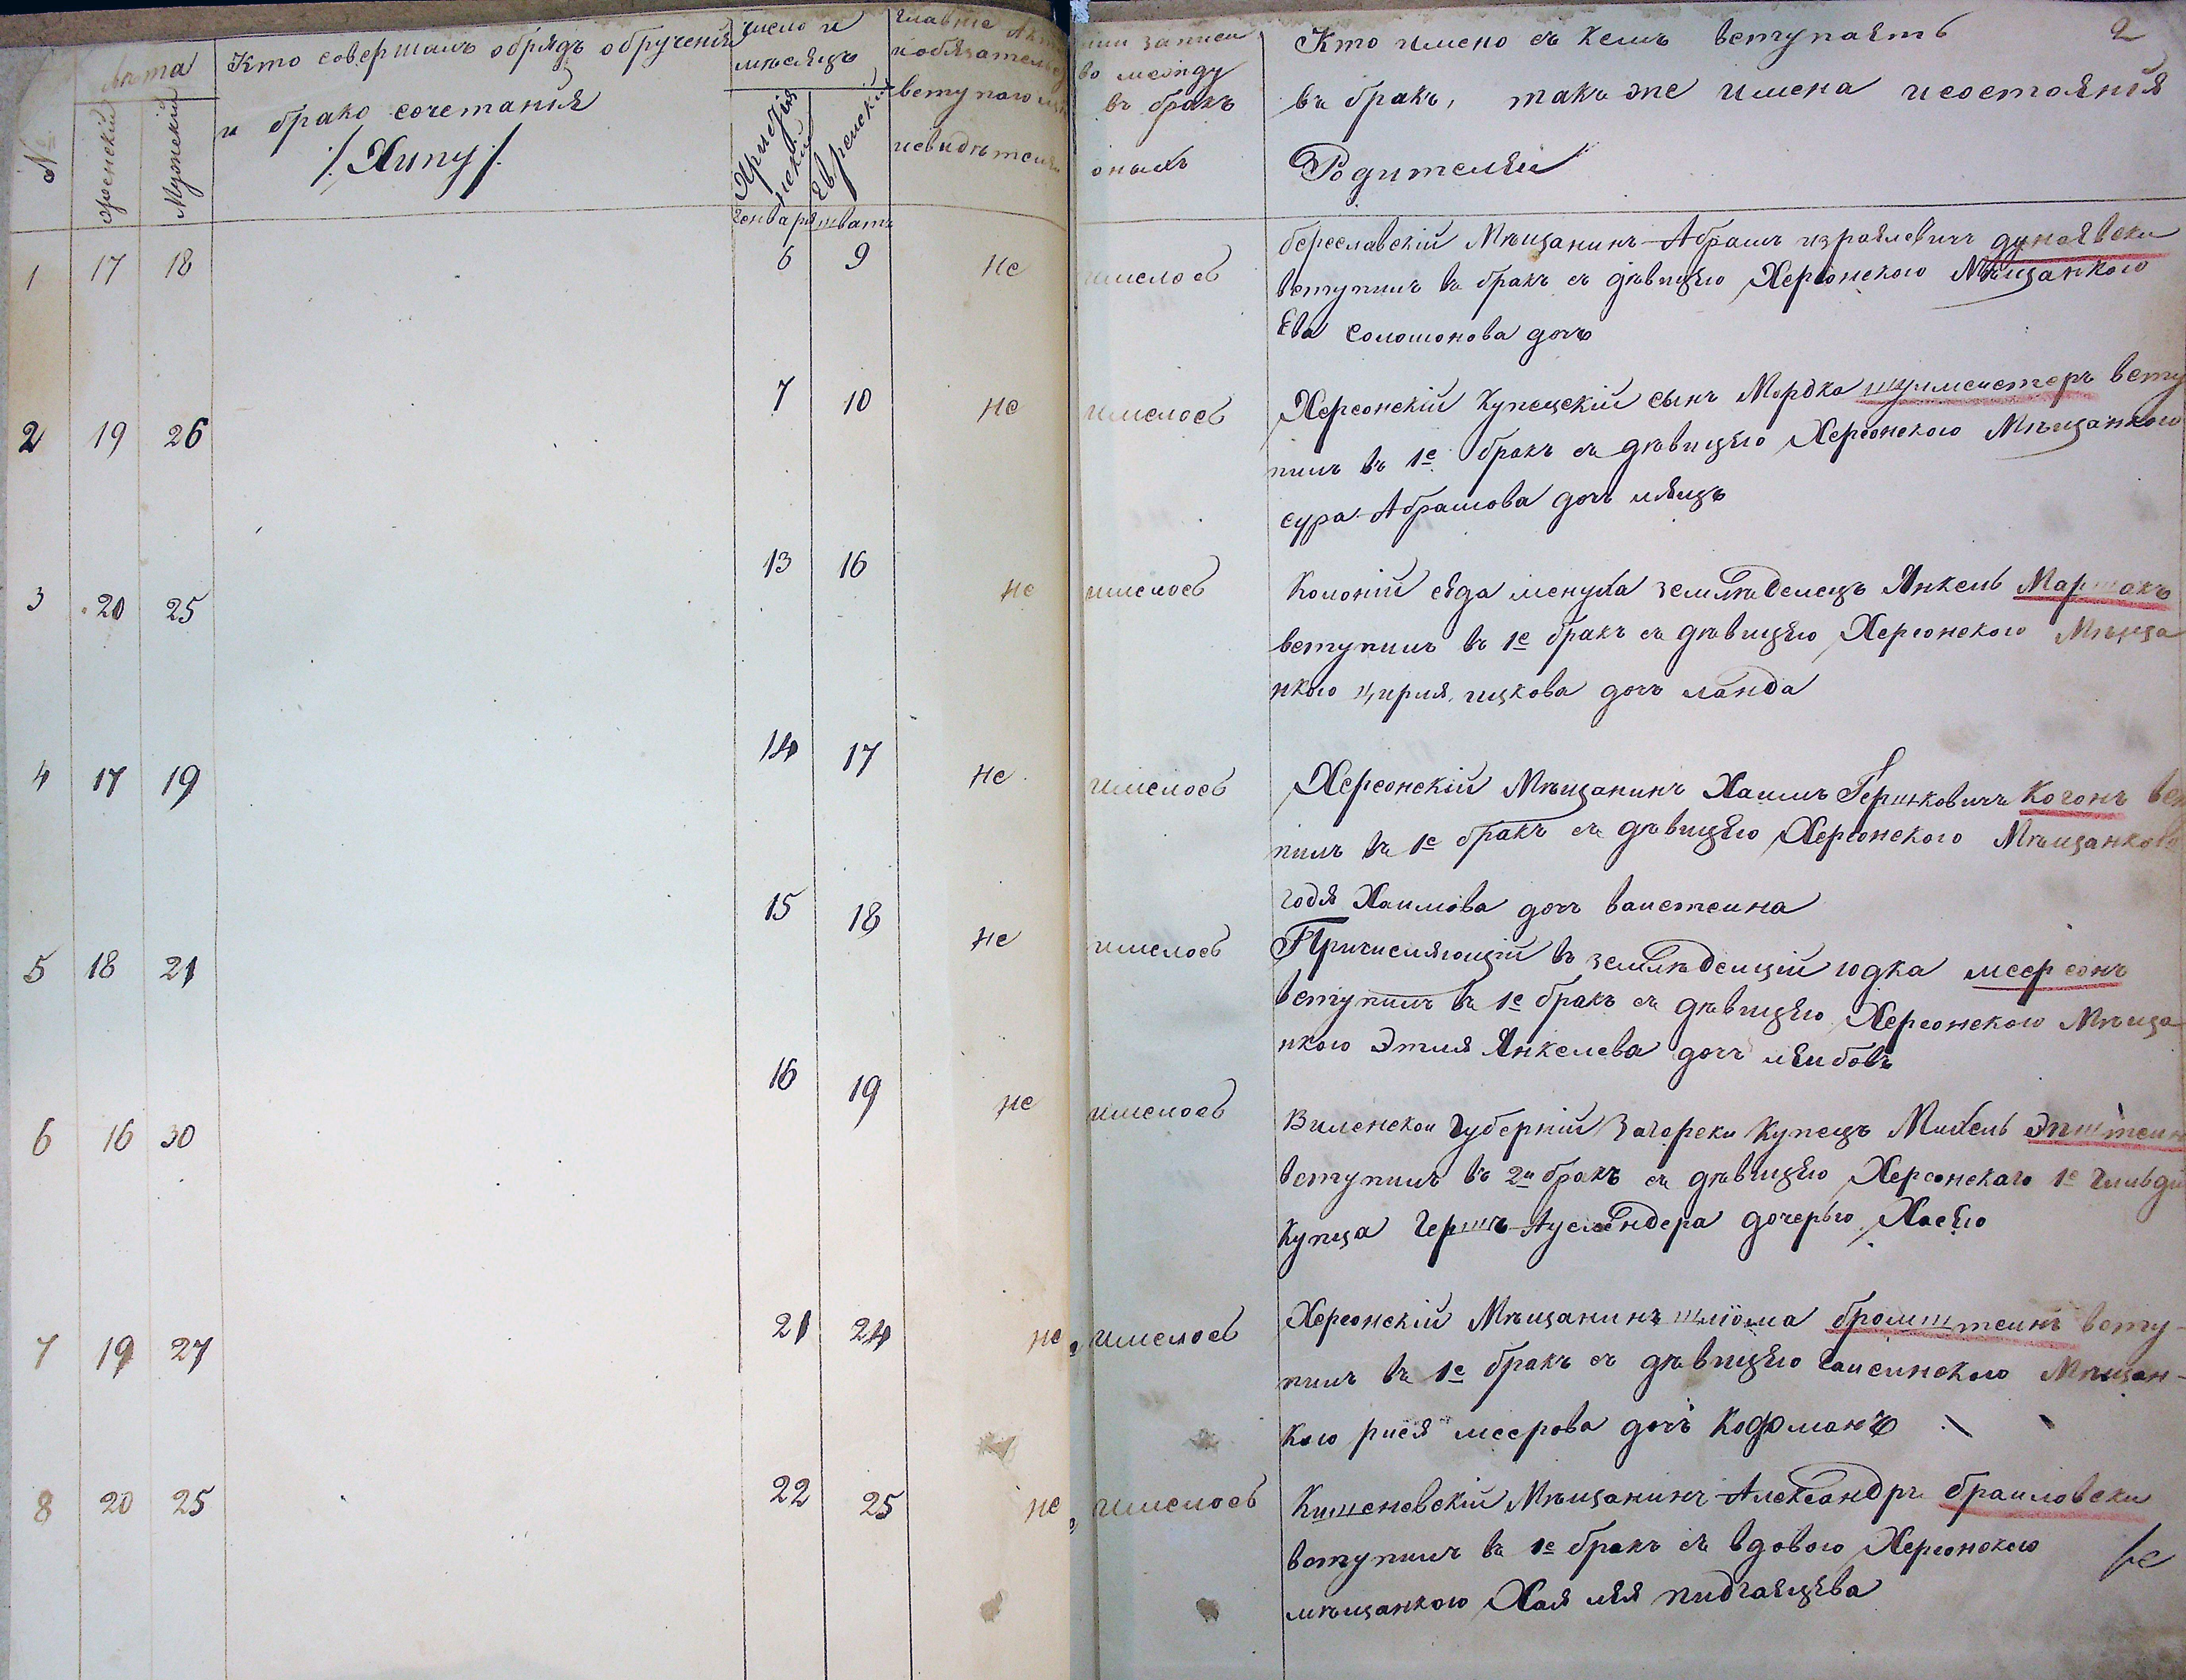 №
лѣта
женский
Мужеский
Кто совершалъ обрядъ обручения
и брако сочетания
/: Хипу :/
число и
мѣсяцъ
Христіа
нский
Еврейский
генваря
шватъ
главные Ак
и обязательс
вступаю
и свидѣтели
или записи
во между
въ бракъ
оныхъ
Кто имено съ кемъ вступаять
2
въ бракъ, такъ же имена и состояния
Родителяй
1 17 18 6 9 не имелось
береславский Мѣщанинъ Абрамъ израилевичъ дунаявски
вступилъ въ бракъ съ дѣвицяю Херсонского Мѣщанкою
Ева Соломонова дочъ
2 19 26 7 10 не имелось
Херсонский Купецкий сынъ Мордко шулмеистеръ всту
пилъ въ 1е бракъ съ дѣвицяю Херсонского Мѣщанкою
сура Абрамова дочъ
3 20 25 13 16 не имелось
Колоний сяда менуха земляделецъ Янкель Маршакъ
вступилъ въ 1е бракъ съ дѣвицяю Херсонского Мѣща
нкою ицкова дочъ ланда
4 17 19 14 17 не имелось
Херсонский Мѣщанинъ Хаимъ Гершковичъ Когонъ вст
пилъ въ 1е бракъ съ дѣвицяю Херсонского Мѣщанкою
годя Хаимова дочъ ваистеина
5 18 21 15 18 не имелось
Причисляющий въ земляделций юдка меерсонъ
вступилъ въ 1е бракъ съ дѣвицяю Херсонского Мѣща
нкою Этля Янкелева дочъ лѣибовъ
6 16 30 16 19 не имелось
Виленскои Губерний Загорски Купецъ Михель Эпштеин
вступилъ въ 2й бракъ съ дѣвицяю Херсонскаго 1е Гильди
Купца Гершъ Аусляндера дочерью Хасяю
7 19 27 21 24 не имелось
Херсонский Мѣщанинъ шлiома бромштеинъ всту-
пилъ въ 1е бракъ съ дѣвицяю Гаисинского Мѣщан-
кою рися меерова дочъ Кофманъ
8 20 25 22 25 не имелось
Кишеневский Мѣщанинъ Александръ браиловски
вступилъ въ 1е бракъ съ вдовою Херсонского
мѣщанкою Хая лѣя пидгаяцева